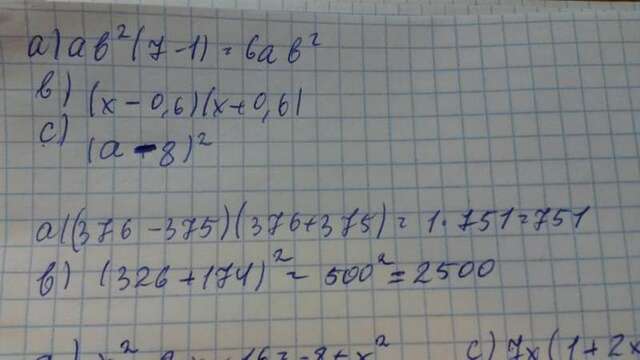 a) ab²(7-1)=6ab²
b) (x-0,6)(x+0,6)
c) (a-8)²
a) (376-375)(376+375)=1·751=751
b) (326+174)²=500²=2500
c) 7x(1+2x